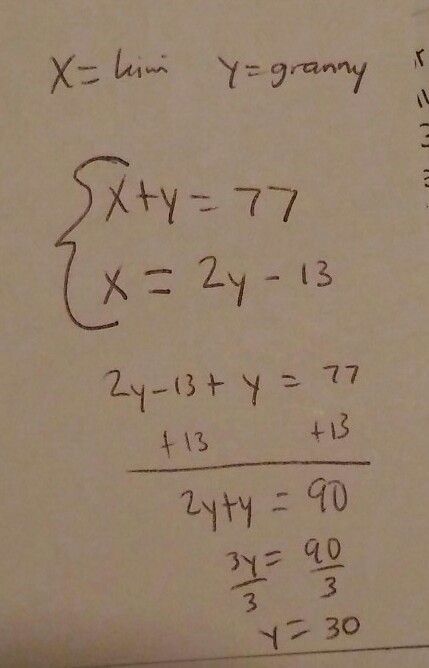 X = kimi Y = granny
x + y = 77
x = 2y - 13
2y - 13 + y = 77
+13 +13
2y + y = 90
3y/3 = 90/3
y = 30